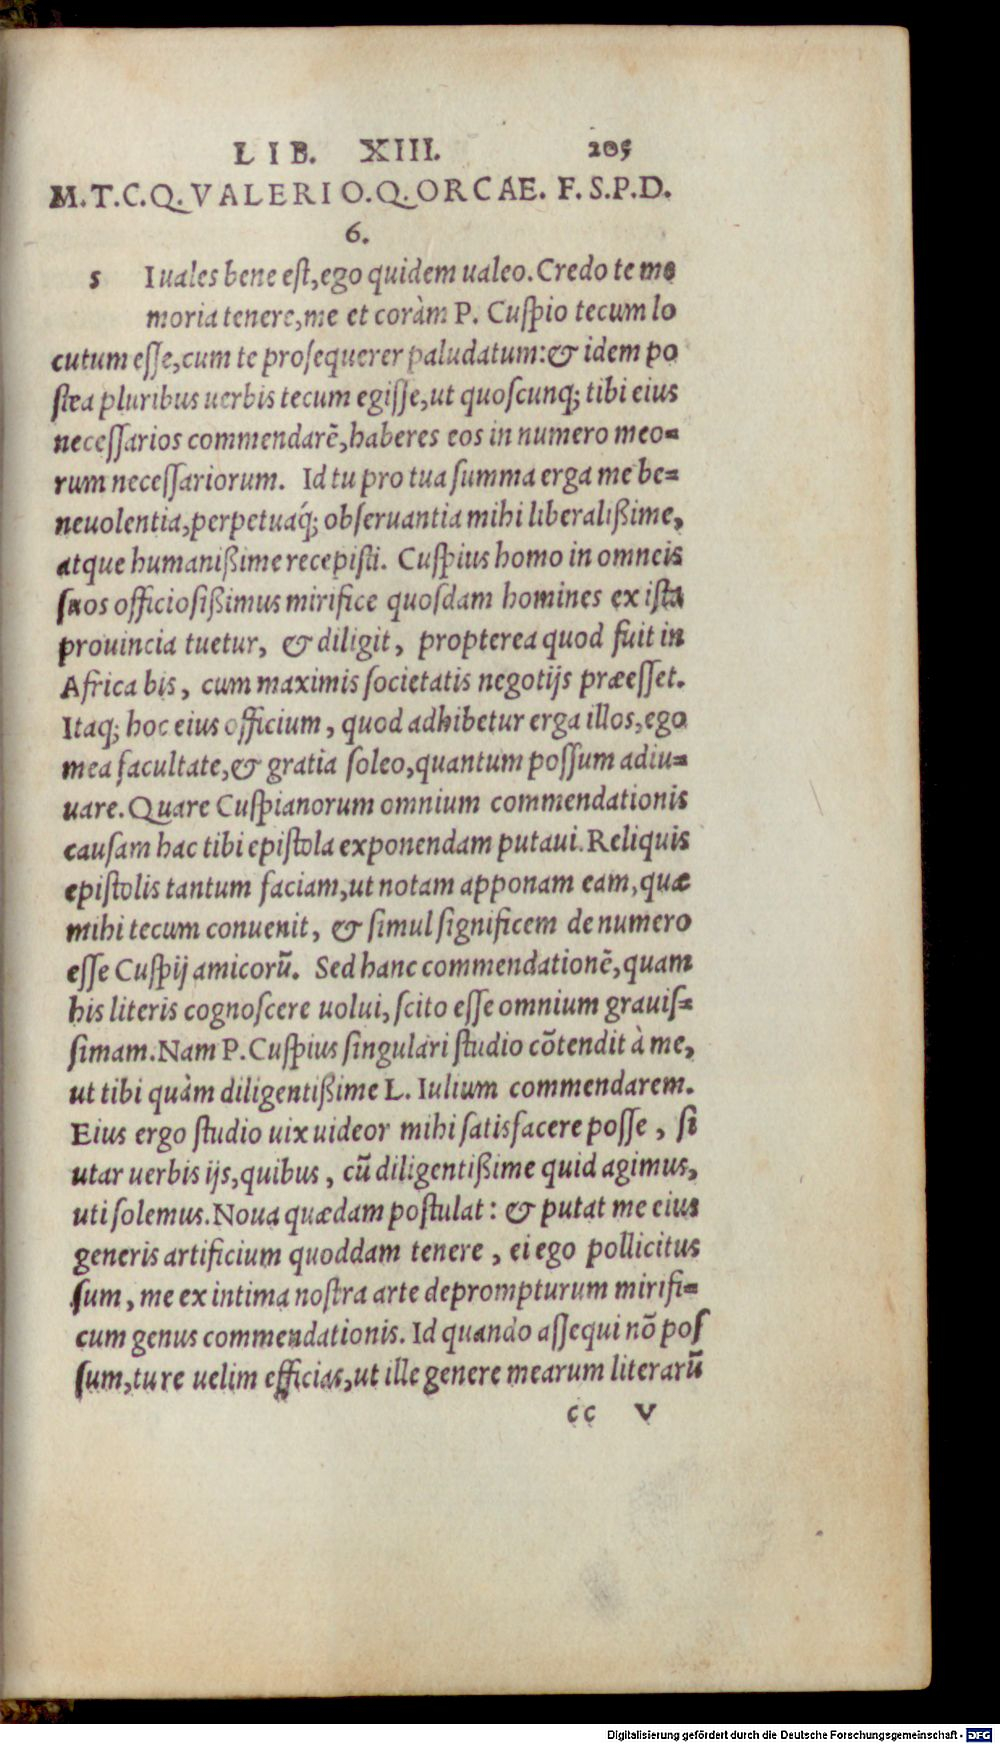 LIB. XIII. 205
M.T.C.Q.VALERIO.Q.ORCAE. F.S.P.D.
6.
s Iuales bene eſt,ego quidem ualeo.Credo te me
moria tenere,me et coràm P. Cuſpio tecum lo
cutum eſſe,cum te proſequerer paludatum:& idem po
ſtea pluribus uerbis tecum egiſſe,ut quoſcunq; tibi eius
neceſſarios commendarē,haberes eos in numero meo=
rum neceſſariorum. Id tu pro tua ſumma erga me be=
neuolentia,perpetuaq́; obſeruantia mihi liberalißime,
atque humanißime recepiſti. Cuſpius homo in omneis
ſuos officioſißimus mirifice quoſdam homines ex iſta
prouincia tuetur, & diligit, propterea quod fuit in
Africa bis, cum maximis ſocietatis negotijs præeſſet.
Itaq; hoc eius officium, quod adhibetur erga illos,ego
mea facultate,& gratia ſoleo,quantum poſſum adiu=
uare.Quare Cuſpianorum omnium commendationis
cauſam hac tibi epiſtola exponendam putaui.Reliquis
epiſtolis tantum faciam,ut notam apponam eam,quæ
mihi tecum conuenit, & ſimul ſignificem de numero
eſſe Cuſpij amicorū. Sed hanc commendationē,quam
his literis cognoſcere uolui,ſcito eſſe omnium grauiſ=
ſimam.Nam P.Cuſpius ſingulari ſtudio cōtendit à me,
ut tibi quàm diligentißime L. Iulium commendarem.
Eius ergo ſtudio uix uideor mihi ſatisfacere poſſe, ſi
utar uerbis ijs,quibus, cū diligentißime quid agimus,
uti ſolemus.Noua quædam poſtulat: & putat me eius
generis artificium quoddam tenere, ei ego pollicitus
ſum, me ex intima noſtra arte deprompturum mirifi=
cum genus commendationis. Id quando aſſequi nō poſ
ſum,tu re uelim efficias,ut ille genere mearum literarū
cc v
Digitalisierung gefördert durch die Deutsche Forschungsgemeinschaft - DFG